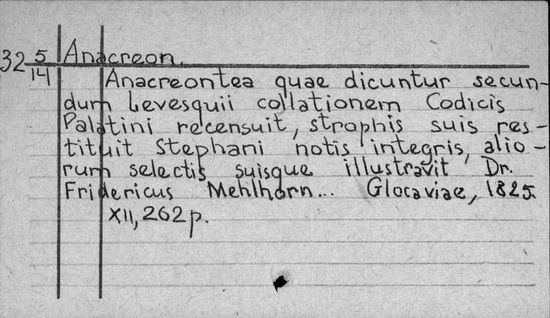 32 5/14 Anacreon.
Anacreontea quae dicuntur secun-
dum Levesquii collationem Codicis
Palatini recensuit, strophis suis res-
tituit Stephani notis integris, alio-
rum selectis suisque illustravit Dr.
Fridericus Mehlhorn... Glocaviae, 1825.
XII, 262 p.